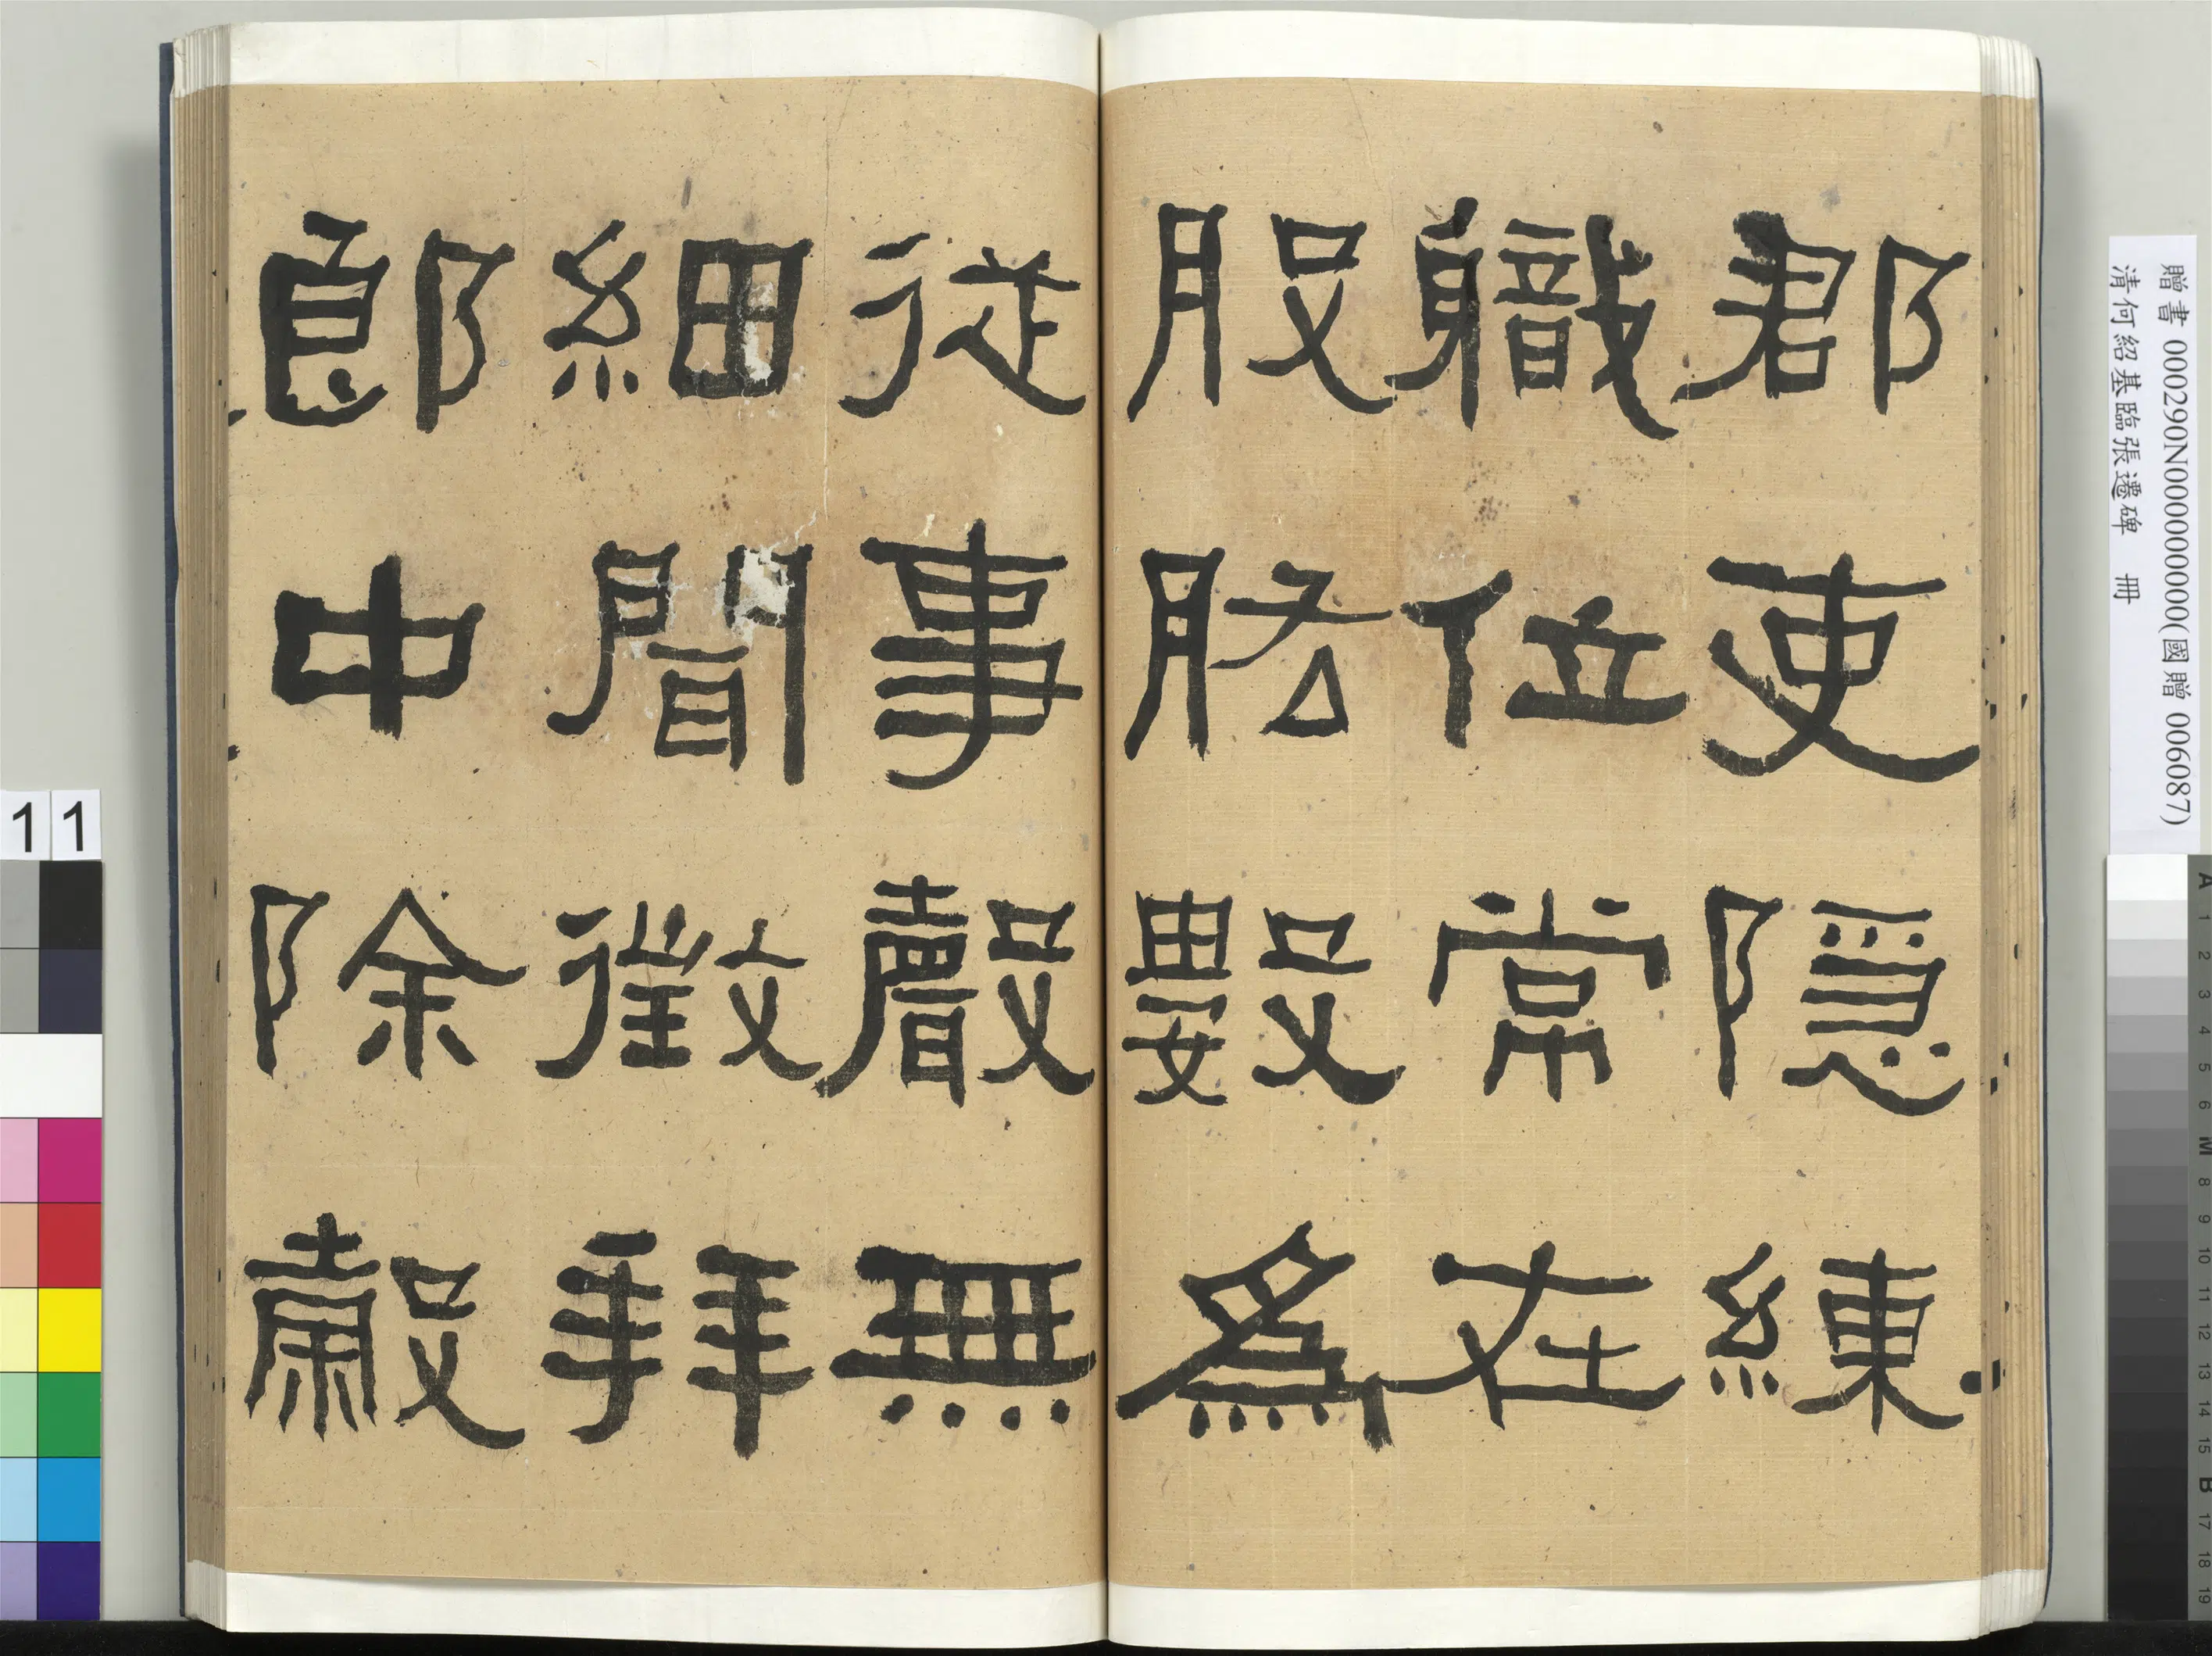 郡吏隱練
職位常在
股肱數為
從事聲無
細聞徵拜
郎中除穀
贈書 000290N000000000(國贈 006087)
清何紹基臨張遷碑 冊
11
A 1 2 3 4 5 6 M 8 9 10 11 12 13 14 15 B 17 18 19